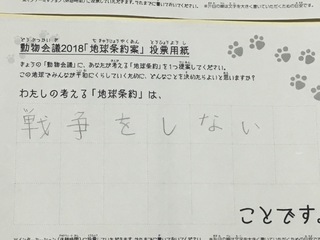 動物会議2018「地球条約案」投票用紙
きょうの「動物会議」に、あなたが考える「地球条約」を1つ提案してください。
この地球でみんなが平和にくらしていくために、どんなことを決めたらよいと思いますか?
わたしの考える「地球条約」は、
戦争をしない
ことです。